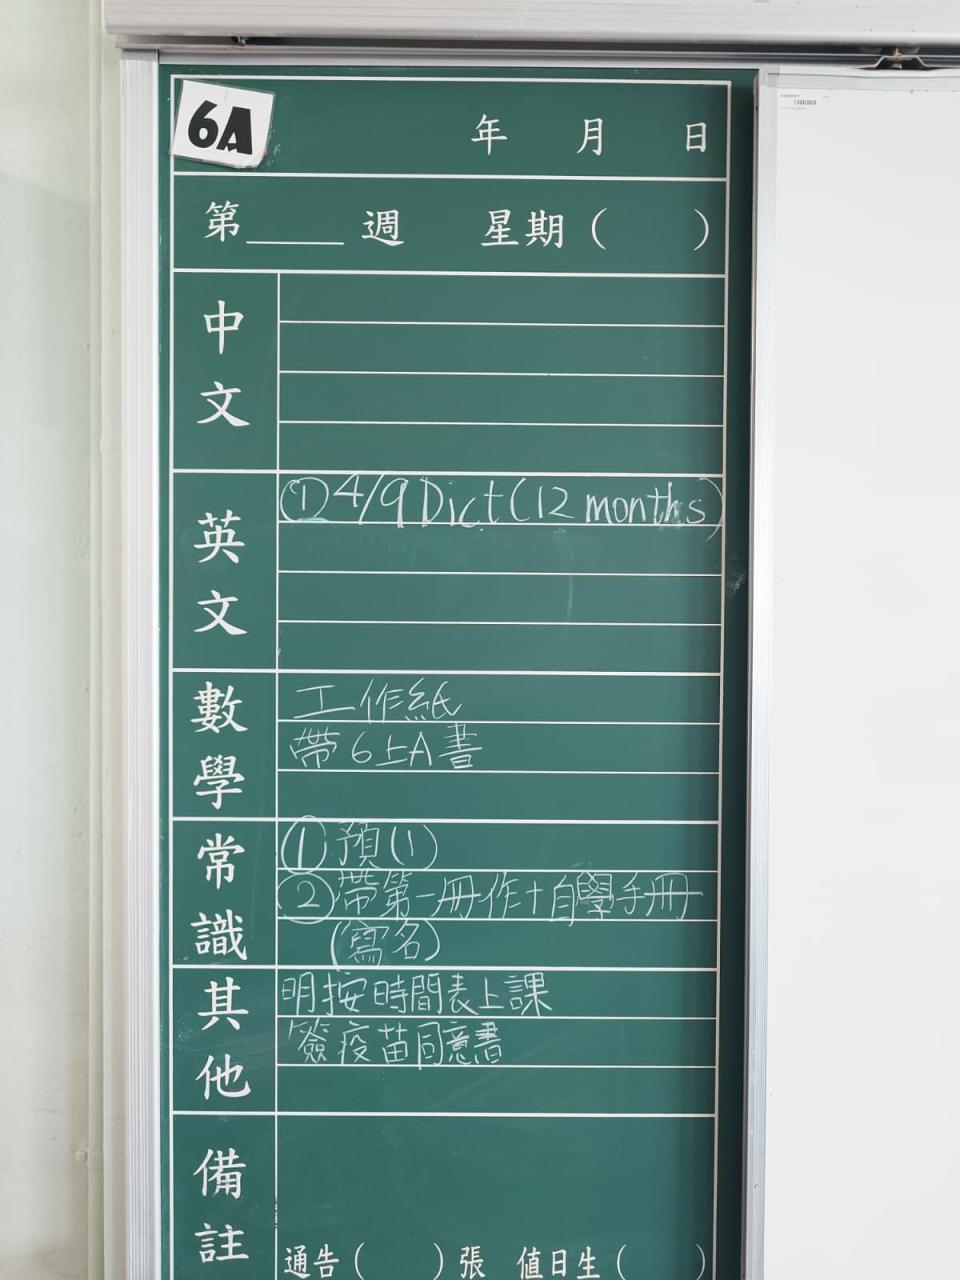 6A
年 月 日
第____週 星期( )
中文
英文
①4/9 Dict(12 months)
數學
工作紙
帶6上A書
常識
①預(1)
②帶第一冊作+自學手冊
(寫名)
其他
明按時間表上課
簽疫苗同意書
備註
通告( )張 值日生( )